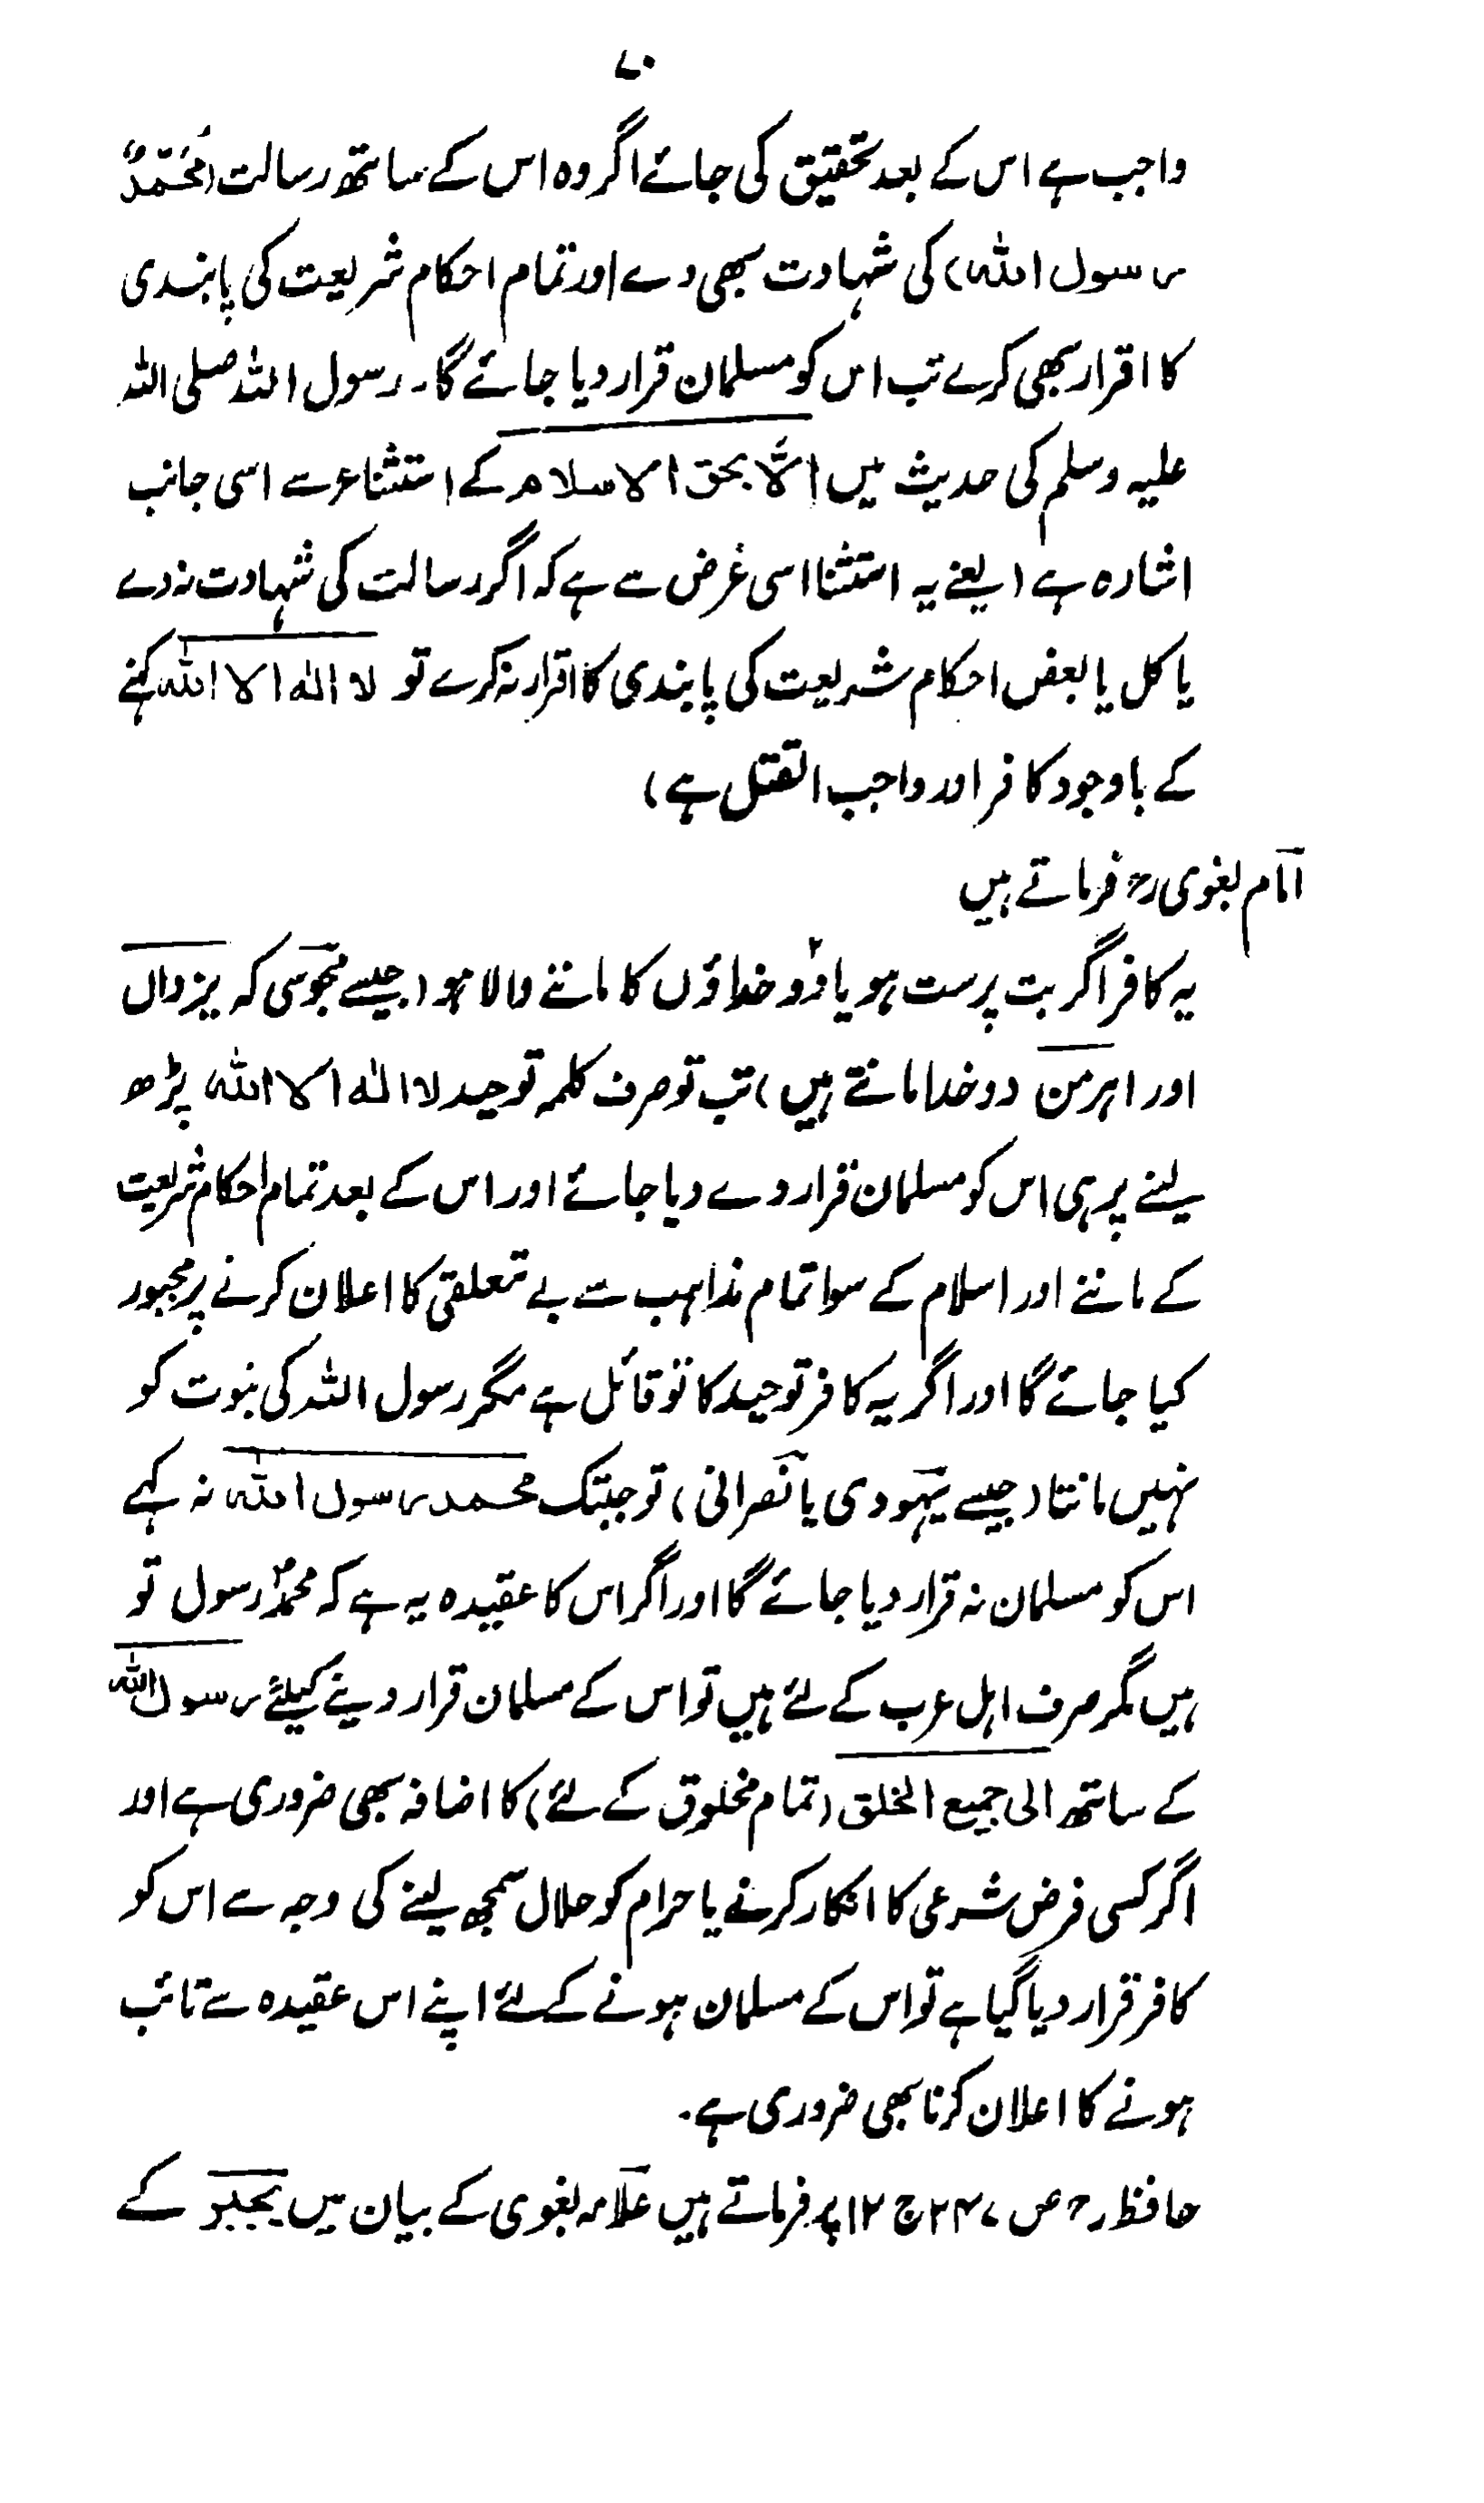 ۷۰
واجب ہے اس کے بعد تحقیق کی جائے اگر وہ اس کے ساتھ رسالت (مُحَمَّدٌ
رسول اللہ) کی شہادت بھی دے اور تمام احکام شریعت کی پابندی
کا اقرار بھی کرے تب اس کو مسلمان قرار دیا جائے گا۔ رسول اللہ صلی اللہ
علیہ وسلم کی حدیث میں الّا بحق الاسلام کے استثناء سے اسی جانب
اشارہ ہے (یعنے یہ استثنا اسی غرض سے ہے کہ اگر رسالت کی شہادت نہ دے
یا کل یا بعض احکام شریعت کی پابندی کا اقرار نہ کرے تو لا الہ الا اللہ کہنے
کے باوجود کافر اور واجب القتل ہے)
امام بغوی رح فرماتے ہیں
یہ کافر اگر بت پرست ہو یا دو خداؤں کا ماننے والا ہو (جیسے مجوسی کہ یزداں
اور اہرمن دو خدا مانتے ہیں) تب تو صرف کلمہ توحید لا الہ الا اللہ پڑھ
لینے پر ہی اس کو مسلمان قرار دے دیا جائے اور اس کے بعد تمام احکام شریعت
کے ماننے اور اسلام کے سوا تمام مذاہب سے بے تعلقی کا اعلان کرنے پر مجبور
کیا جائے گا اور اگر یہ کافر توحید کا تو قائل ہے مگر رسول اللہ کی نبوت کو
نہیں مانتا (جیسے یہودی یا نصرانی) تو جبتک محمد رسول اللہ نہ کہے
اس کو مسلمان نہ قرار دیا جائے گا اور اگر اس کا عقیدہ یہ ہے کہ محمدؐ رسول تو
ہیں مگر صرف اہل عرب کے لئے ہیں تو اس کے مسلمان قرار دینے کیلئے رسول اللہ
کے ساتھ الی جمیع الخلق (تمام مخلوق کے لئے) کا اضافہ بھی ضروری ہے اور
اگر کسی فرض شرعی کا انکار کرنے یا حرام کو حلال سمجھ لینے کی وجہ سے اس کو
کافر قرار دیا گیا ہے تو اس کے مسلمان ہونے کے لئے اپنے اس عقیدہ سے تائب
ہونے کا اعلان کرنا بھی ضروری ہے۔
حافظ رح ص ۲۴۷ ج ۱۲ پر فرماتے ہیں علامہ بغوی کے بیان میں یجبر کے